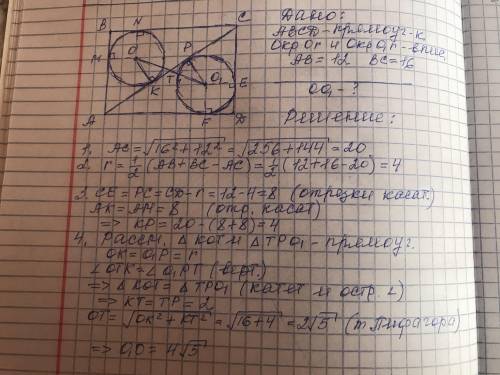 B N C
M O P
T O₁ E
K
A F D
Дано:
ABCD - прямоуг-к
Окр O,r и Окр O₁,r - впис.
AB = 12 BC = 16
OO₁ - ?
Решение:
1. AC = √16² + 12² = √256 + 144 = 20
2. r = 1/2 (AB + BC - AC) = 1/2 (12 + 16 - 20) = 4
3. CE = PC = CD - r = 12 - 4 = 8 (отрезки касат.)
AK = AM = 8 (отр. касат)
=> KP = 20 - (8 + 8) = 4
4. Рассм. △ KOT и △ TPO₁ - прямоуг.
OK = O₁P = r
∠OTK = ∠O₁PT (верт.)
=> △KOT = △TPO₁ (катет и остр. ∠)
=> KT = TP = 2
OT = √OK² + KT² = √16 + 4 = 2√5 (т Пифагора)
=> O₁O = 4√5